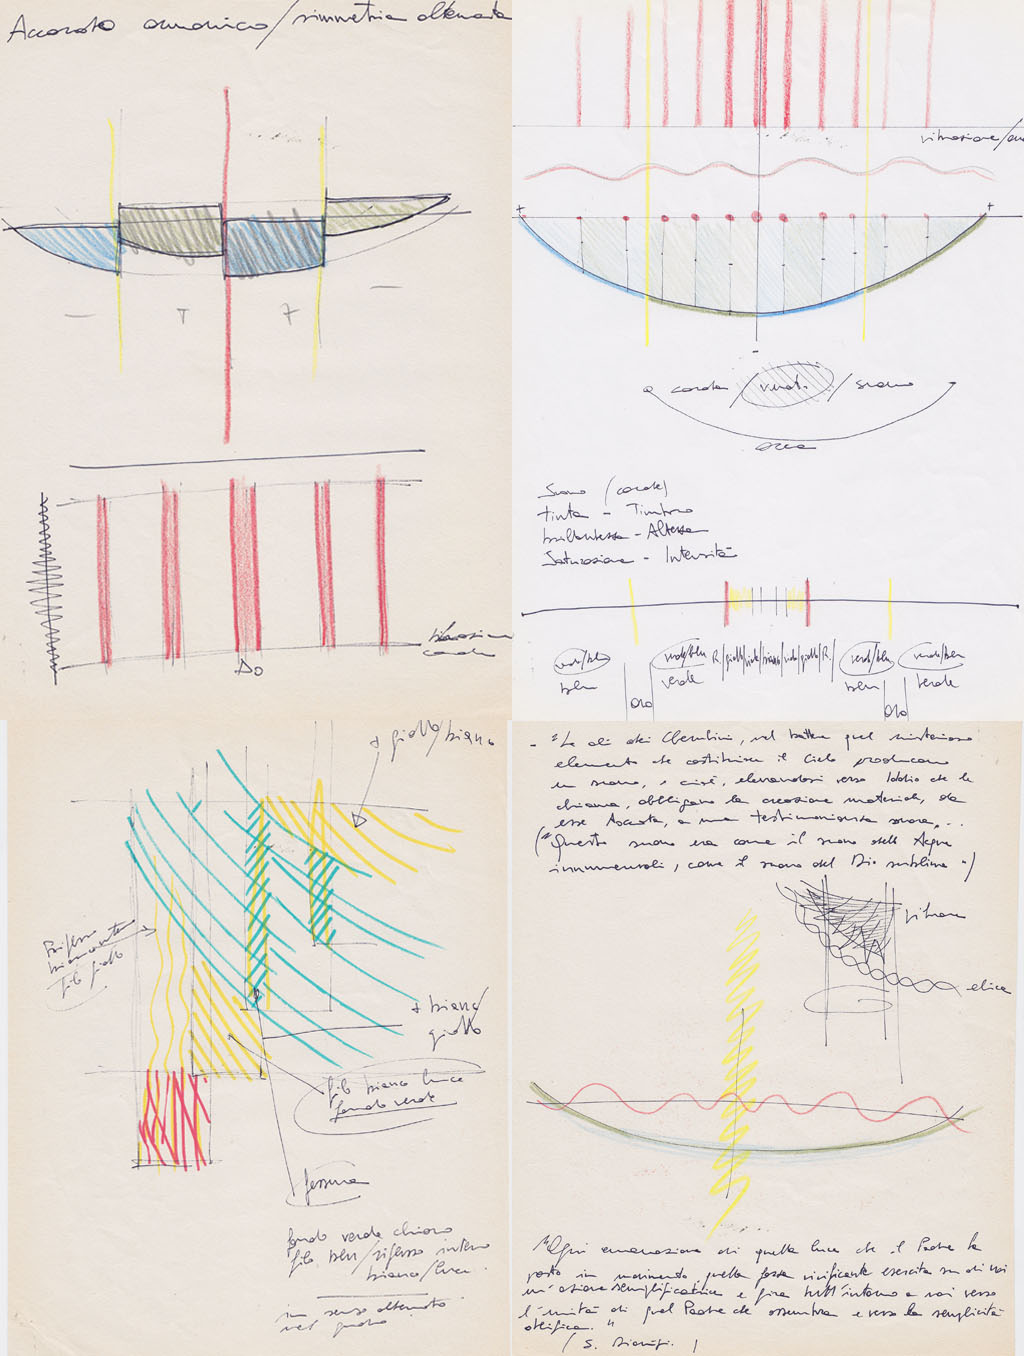 Accordo armonico / simmetria alternata
Do
vibrazione
corda
vibrazione /
corda / vuoto / suono
arca
Suono (corde)
tinta - Timbro
brillantezza - Altezza
Saturazione - Intensità
verde/blu
verde/blu R/giallo/verde/bianco/verde/giallo/R.
verde/blu
verde/blu
blu
verde
blu
verde
oro
oro
+ giallo/bianco
Riflesso
filo giallo
+ bianco/
giallo
filo bianco luce
fondo verde
fessura
fondo verde chiaro
filo blu/riflesso interno
bianco/luce.
in senso alternato
nel quadro
- "Le ali dei Cherubini, nel battere quel misterioso
elemento che costituisce il Cielo producono
un suono, e così, elevandosi verso Iddio che le
chiama, obbligano la creazione materiale, da
esse toccata, a una testimonianza sonora,...
("Questo suono era come il suono delle Acque
innumerevoli, come il suono del Dio sublime")
vibrare
elica
"Ogni emanazione di quella luce che il Padre ha
posto in movimento, quella forza vivificante esercita su di noi
un'azione semplificatrice e gira tutt'intorno a noi verso
l'unità di quel Padre che assembra e verso la semplicità
deifica."
(S. Dionigi.)